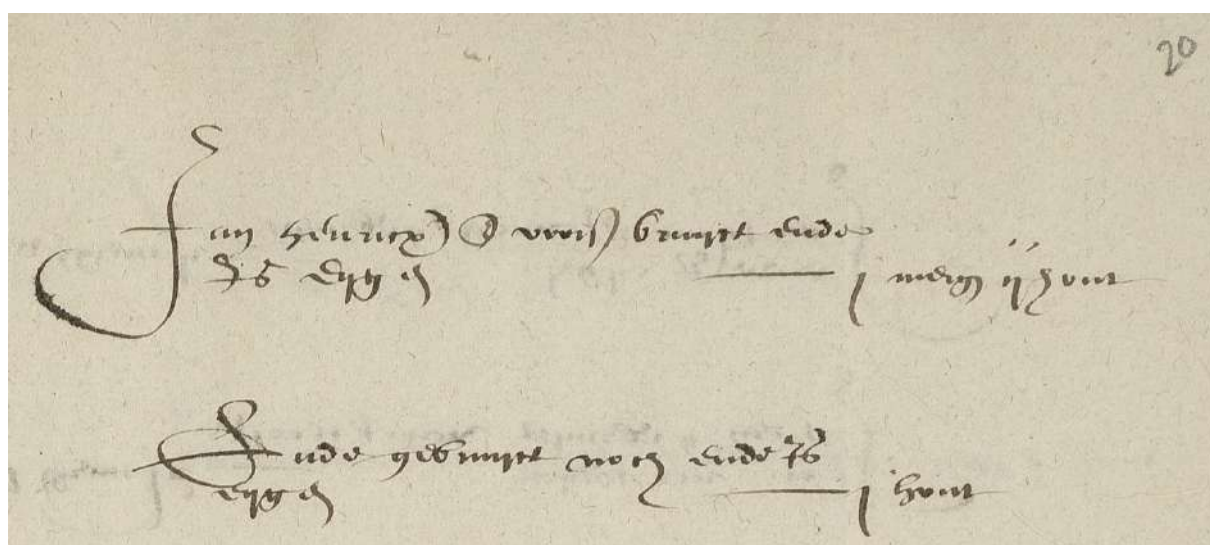 20
Jan henricx) @ voirs) bruyct ende
Is eyg en j merg ij hont
Ende gebruyct noch ende Is
eyg en j hont